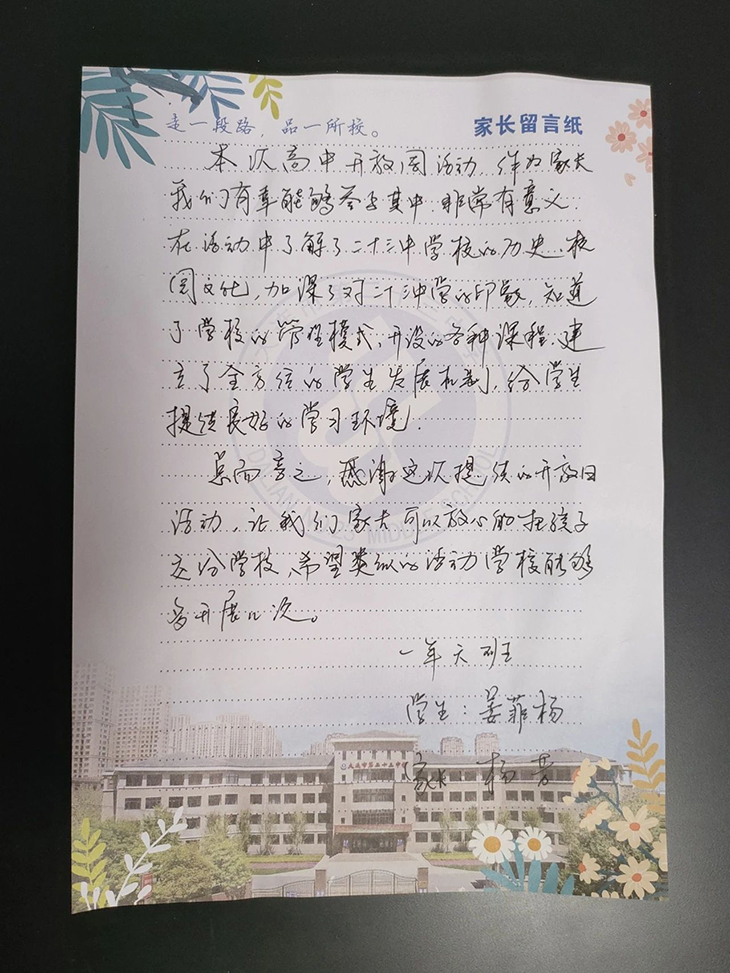 走一段路，品一所校。
家长留言纸
本次高中开放周活动，作为家长
我们有幸能够参与其中，非常有意义
在活动中了解了二十三中学校的历史、校
园文化，加深了对二十三中学的印象，知道
了学校的管理模式，开设的各种课程，建
立了全方位的学生发展机制，给学生
提供良好的学习环境.
总而言之，感谢这次提供的开放日
活动，让我们家长可以放心的把孩子
交给学校，希望类似的活动学校能够
多开展几次。
一年六班
学生：姜菲杨
家长：杨
DALIAN NO.23 MIDDLE SCHOOL
大连市第二十三中学